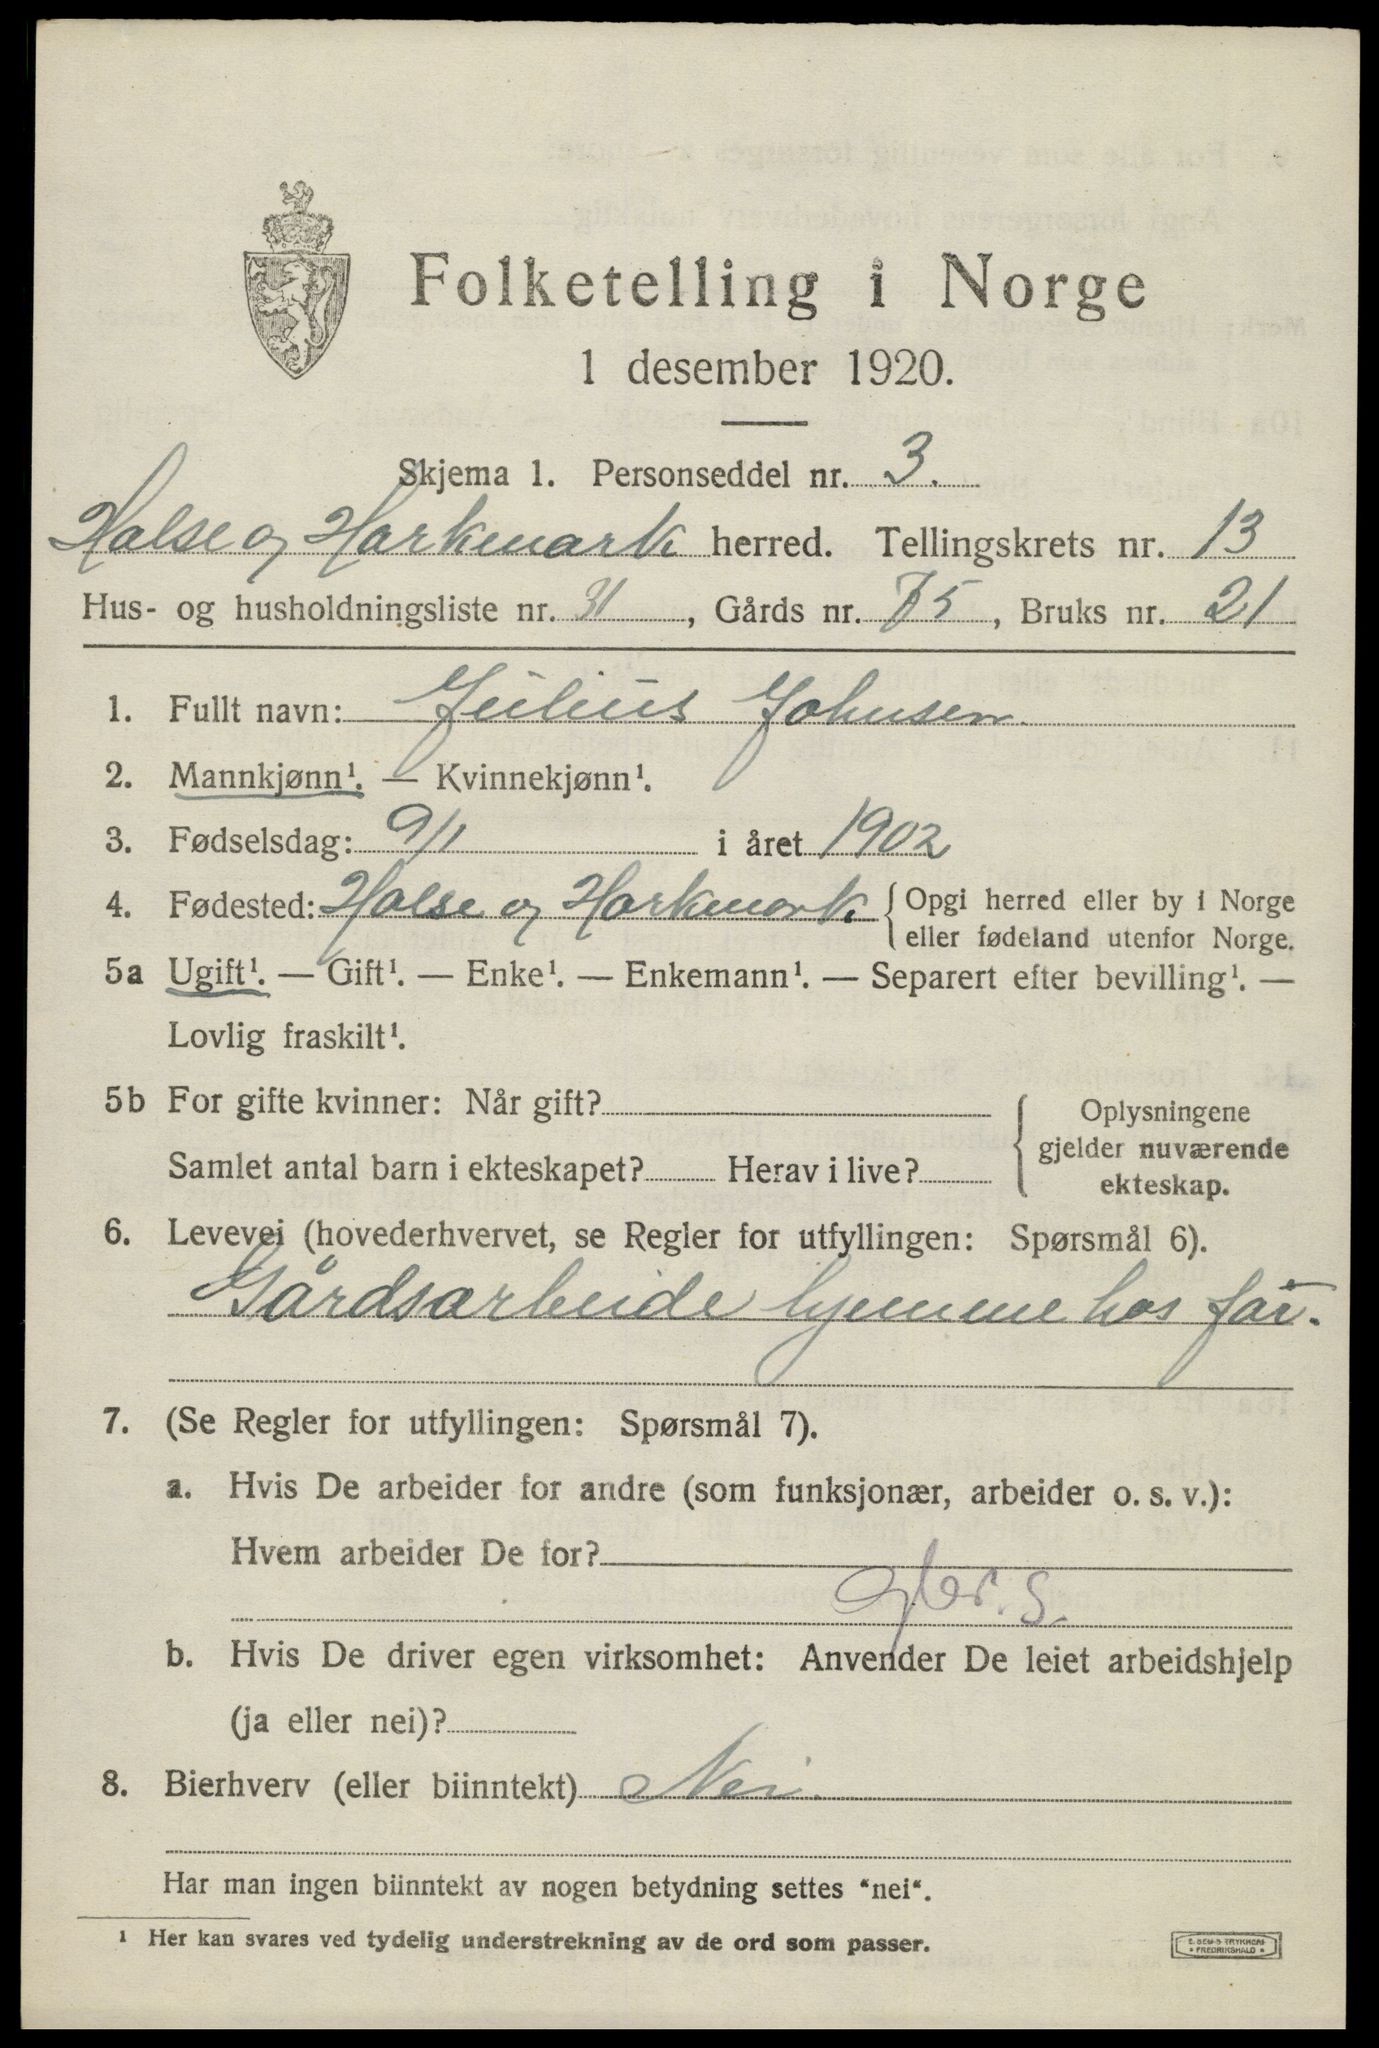 Folketelling i Norge
1 desember 1920.
Skjema 1. Personseddel nr. 3.
Halse og Harkmark herred. Tellingskrets nr. 13
Hus- og husholdningsliste nr. 31, Gårds nr. 75, Bruks nr. 21
1. Fullt navn: Julius Johnsen
2. Mannkjønn¹. — Kvinnekjønn¹.
3. Fødselsdag: 9/1 i året 1902
4. Fødested: Halse og Harkmark { Opgi herred eller by i Norge
eller fødeland utenfor Norge.
5a Ugift¹. — Gift¹. — Enke¹. — Enkemann¹. — Separert efter bevilling¹. —
Lovlig fraskilt¹.
5b For gifte kvinner: Når gift?
Samlet antal barn i ekteskapet? Herav i live?
{ Oplysningene
gjelder nuværende
ekteskap.
6. Levevei (hovederhvervet, se Regler for utfyllingen: Spørsmål 6).
Gårdsarbeide hjemme hos far.
7. (Se Regler for utfyllingen: Spørsmål 7).
a. Hvis De arbeider for andre (som funksjonær, arbeider o. s. v.):
Hvem arbeider De for?
b. Hvis De driver egen virksomhet: Anvender De leiet arbeidshjelp
(ja eller nei)?
8. Bierhverv (eller biinntekt) Nei.
Har man ingen biinntekt av nogen betydning settes "nei".
¹ Her kan svares ved tydelig understrekning av de ord som passer.
E. SEM'S TRYKKERI
FREDRIKSHALD